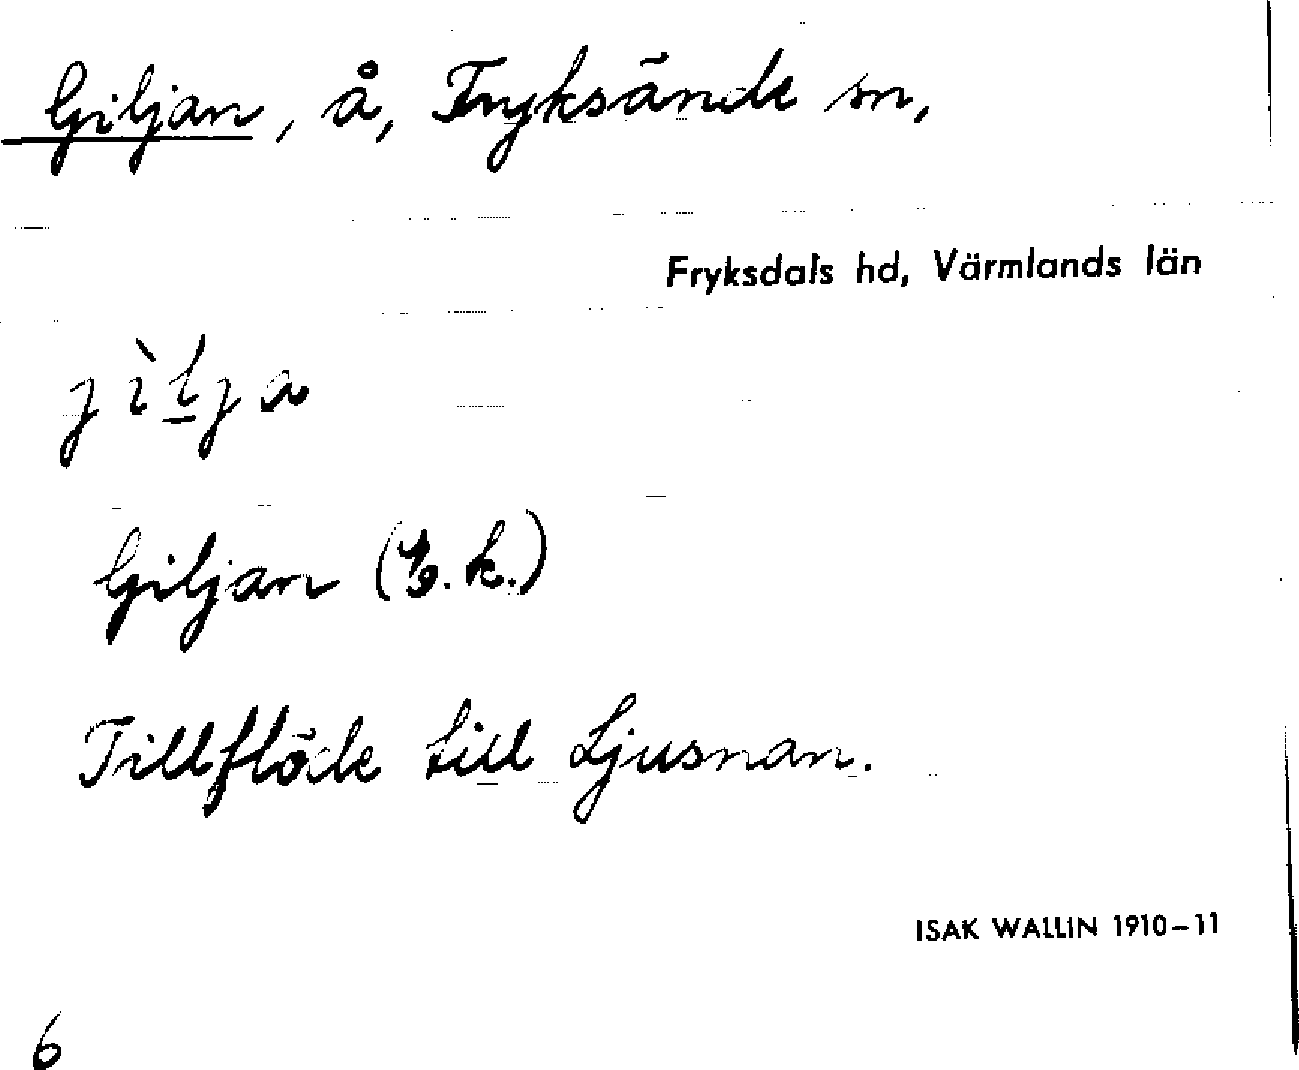 Giljan, å, Fryksände sn,
Fryksdals hd, Värmlands län
jìl̲ja
Giljan (t/s. k.)
Tillflöde till Ljusnan.
ISAK WALLIN 1910–11
6